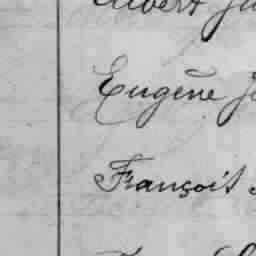 Albert Ju
Eugène Jo
François